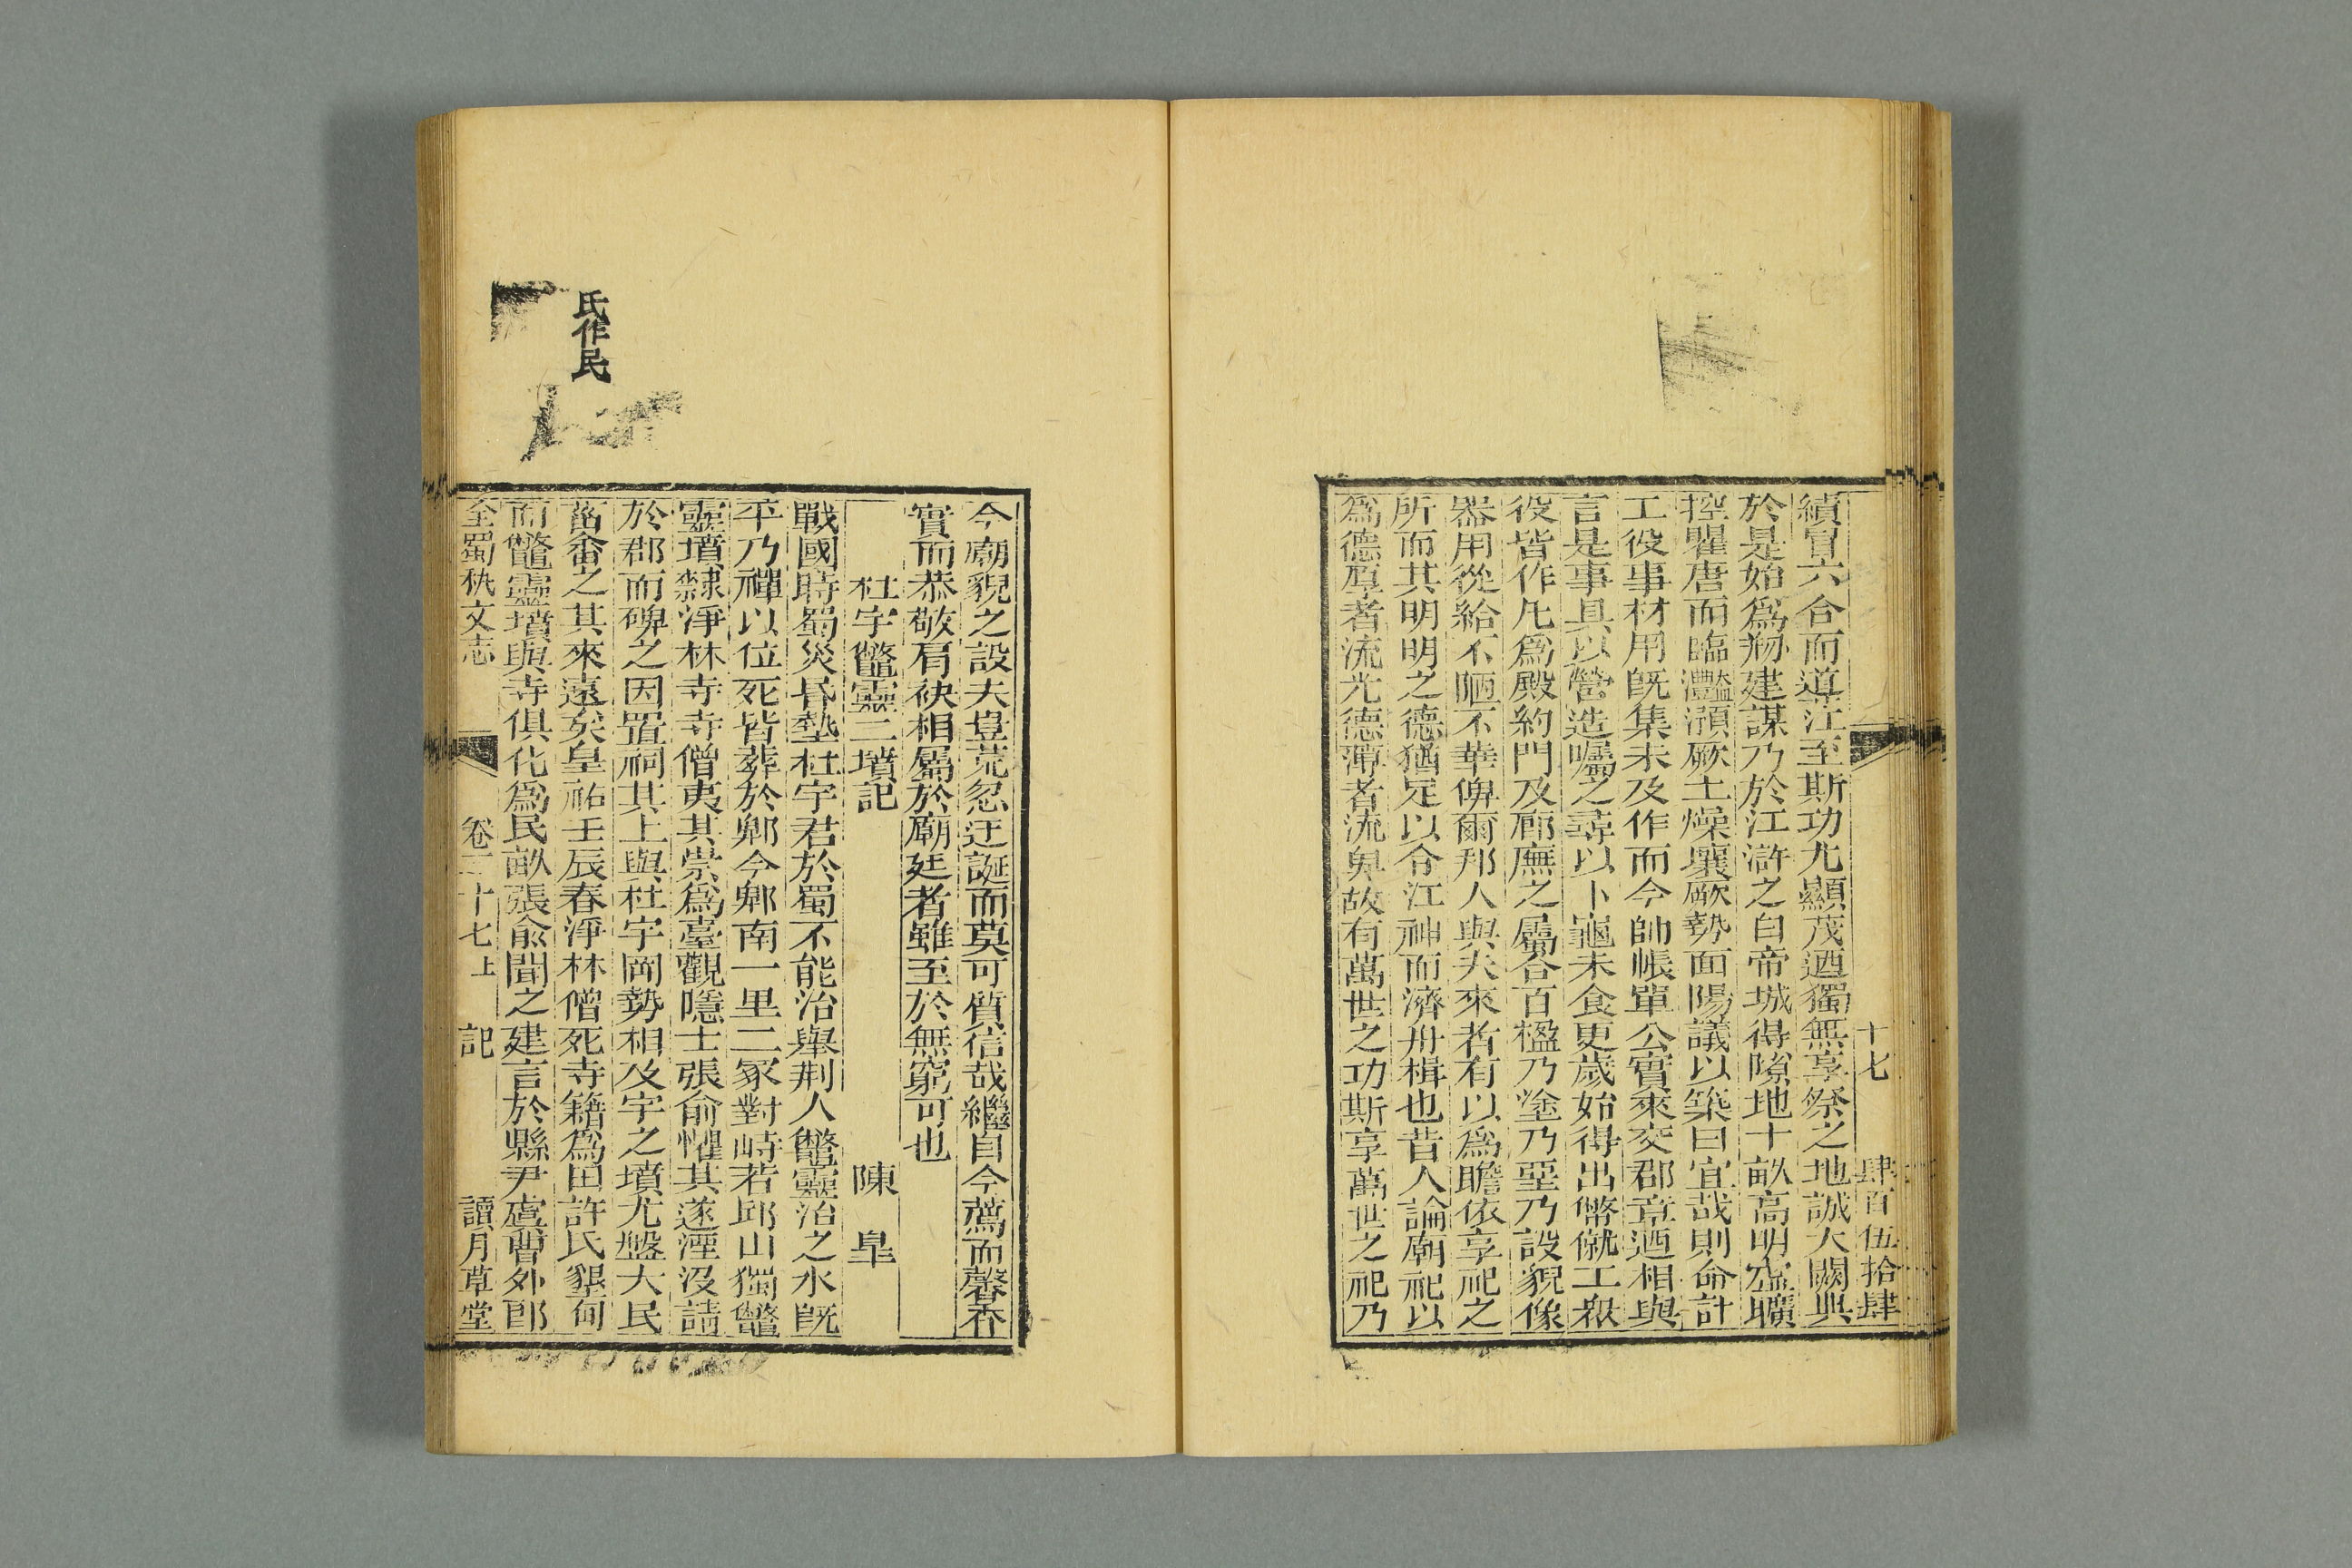 十七 肆百伍拾肆
績冒六合而道江至斯功尤顯茂迺獨無享祭之地誠大闕典
於是始爲剏建謀乃於江滸之白帝城得隙地十畝高明空曠
控瞿唐而臨灩澦厥土燥壤厥勢面陽議以築曰宜哉則命計
工役事材用旣集未及作而今帥帳單公實來交郡章迺相與
言是事具以營造囑之尋以卜龜未食更歲始得出幣僦工衆
役皆作凡爲殿約門及廊廡之屬合百楹乃塗乃堊乃設貌像
器用從給不陋不華俾爾邦人與夫來者有以爲瞻依享祀之
所而其明明之德猶足以令江神而濟舟楫也昔人論廟祀以
爲德厚者流光德薄者流㽞故有萬世之功斯享萬世之祀乃
今廟貌之設夫豈荒忽迂誕而莫可質信哉繼自今薦而馨香
實而恭敬肩袂相屬於廟廷者雖至於無窮可也
杜宇鼈靈二墳記 陳皐
戰國時蜀災昏墊杜宇君於蜀不能治舉荆人鼈靈治之水旣
平乃禪以位死皆葬於郫今郫南一里二冢對峙若邱山獨鼈
靈墳隸淨林寺寺僧夷其崇爲臺觀隱士張俞懼其遂湮沒請
於郡而碑之因置祠其上與杜宇岡勢相及宇之墳尤盤大民
菑畬之其來遠矣皇祐壬辰春淨林僧死寺籍爲田許氏墾甸
而鼈靈墳與寺俱化爲民畝張俞聞之建言於縣尹虞曹外郎
全蜀秇文志 卷三十七上 記 讀月草堂
氏作民